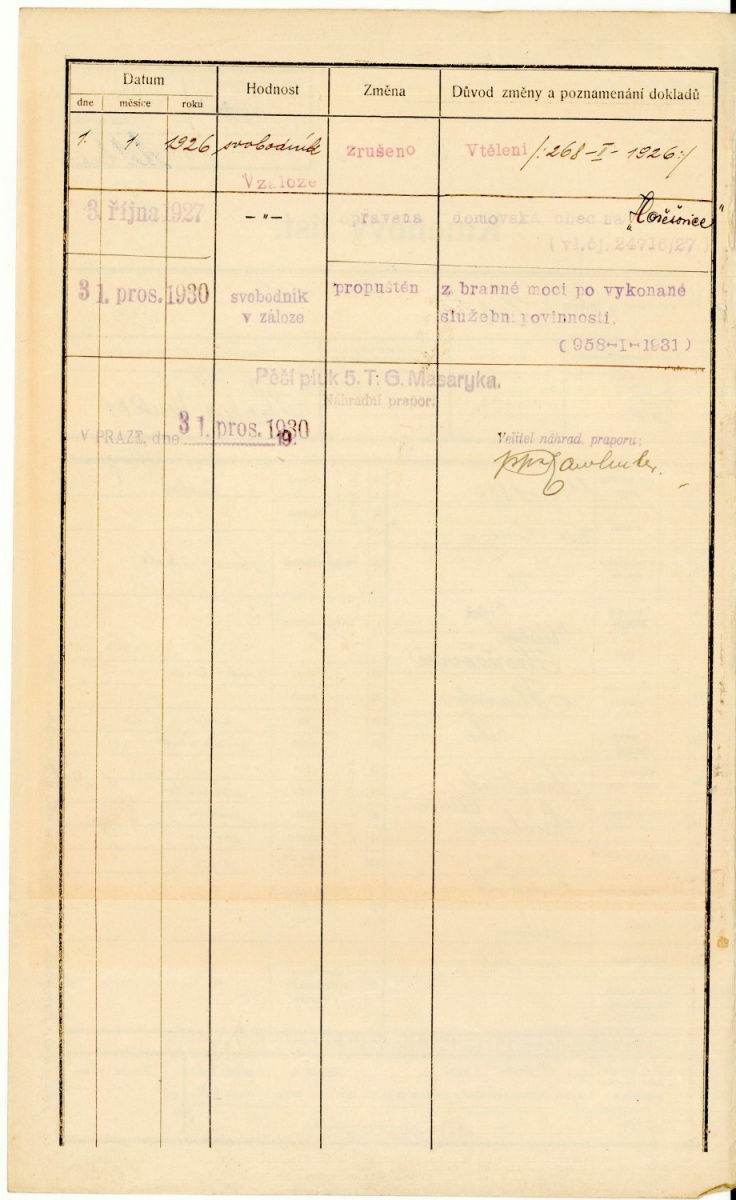 Datum Hodnost Změna Důvod změny a poznamenání dokladů
dne měsíce roku
1. 1. 1926 svobodník zrušeno Vtělení /:268-I- 1926:/
Vzáloze
3. října 1927 —„— opravena domovská obec na
(vl.čj. 24716/27)
31. pros. 1930 svobodník propuštěn z branné moci po vykonané
v záloze služební povinnosti.
(958-I-1931)
Pěší pluk 5. T. G. Masaryka.
Náhradní prapor.
V PRAZE, dne 31. pros. 1930 19
Velitel náhrad. praporu: